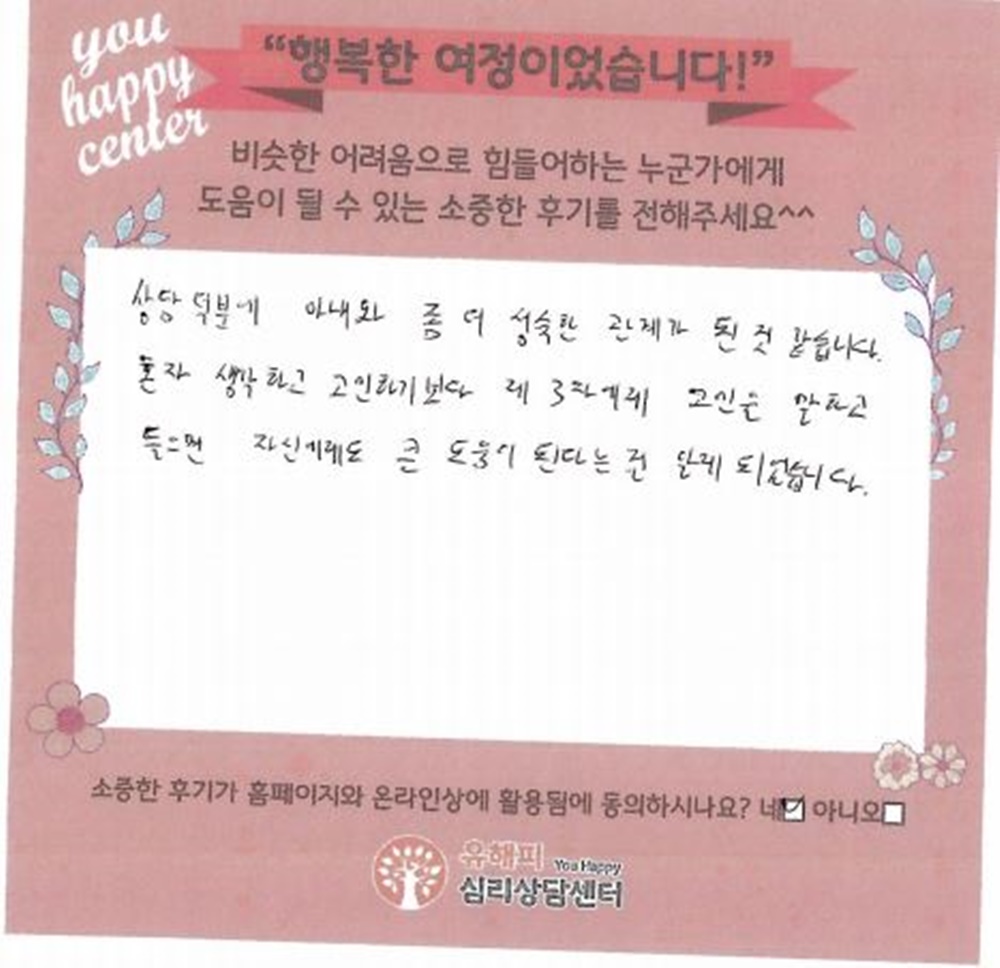 you
happy
center
“행복한 여정이었습니다!”
비슷한 어려움으로 힘들어하는 누군가에게
도움이 될 수 있는 소중한 후기를 전해주세요^^
상담 덕분에 아내와 좀 더 성숙한 관계가 된 것 같습니다.
혼자 생각하고 고민하기보다 제 3자에게 고민을 말하고
들으면 자신에게도 큰 도움이 된다는 걸 알게 되었습니다.
소중한 후기가 홈페이지와 온라인상에 활용됨에 동의하시나요? 네☑ 아니오☐
유해피 You Happy
심리상담센터